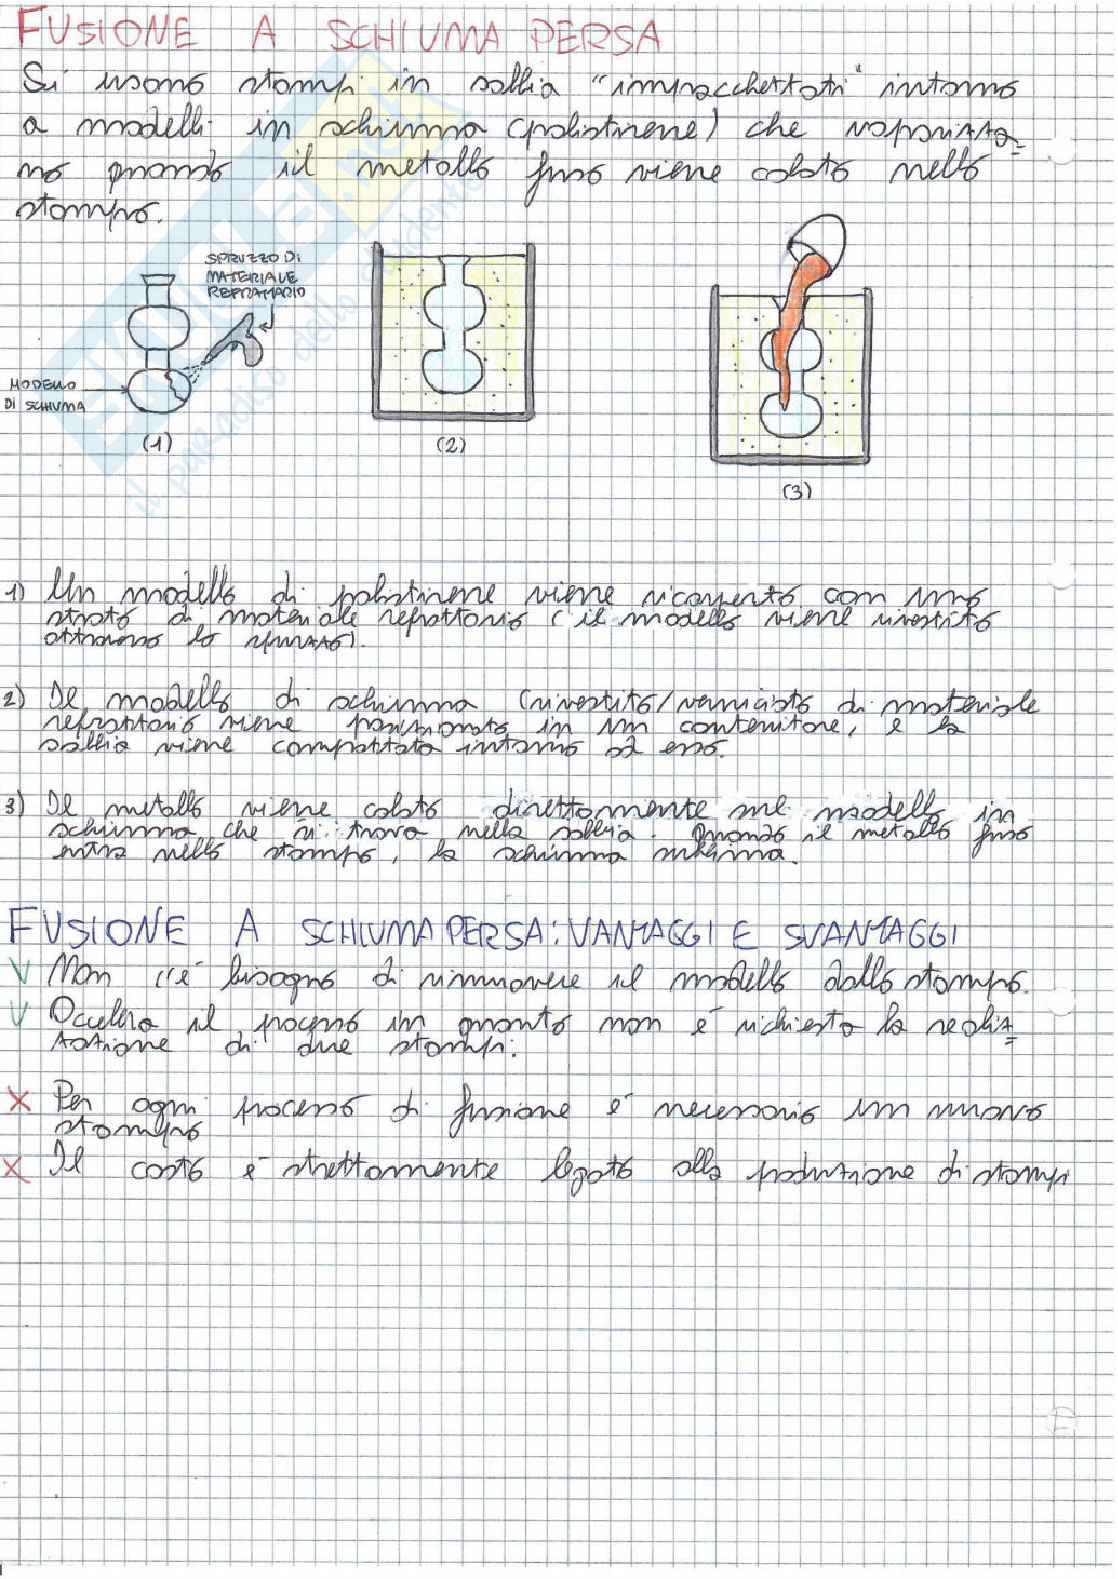 FUSIONE A SCHIUMA PERSA
Si usano stampi in sabbia "impacchettati" intorno
a modelli in schiuma (polistirene) che vaporizza=
no quando il metallo fuso viene colato nello
stampo.
SPRUZZO DI
MATERIALE
REFRATTARIO
MODELLO
DI SCHIUMA
(1)
(2)
(3)
1) Un modello di polistirene viene ricoperto con uno
strato di materiale refrattario (il modello viene rivestito
attraverso lo spruzzo).
2) Il modello di schiuma (rivestito/verniciato di materiale
refrattario viene posizionato in un contenitore, e la
sabbia viene compattata intorno ad esso.
3) Il metallo viene colato direttamente sul modello in
schiuma che si trova nella sabbia. Quando il metallo fuso
entra nello stampo, la schiuma sublima.
FUSIONE A SCHIUMA PERSA: VANTAGGI E SVANTAGGI
V Non c'è bisogno di rimuovere il modello dallo stampo.
V Accelera il processo in quanto non è richiesta la realiz=
zazione di due stampi.
X Per ogni processo di fusione è necessario un nuovo
stampo
X Il costo è strettamente legato alla produzione di stampi